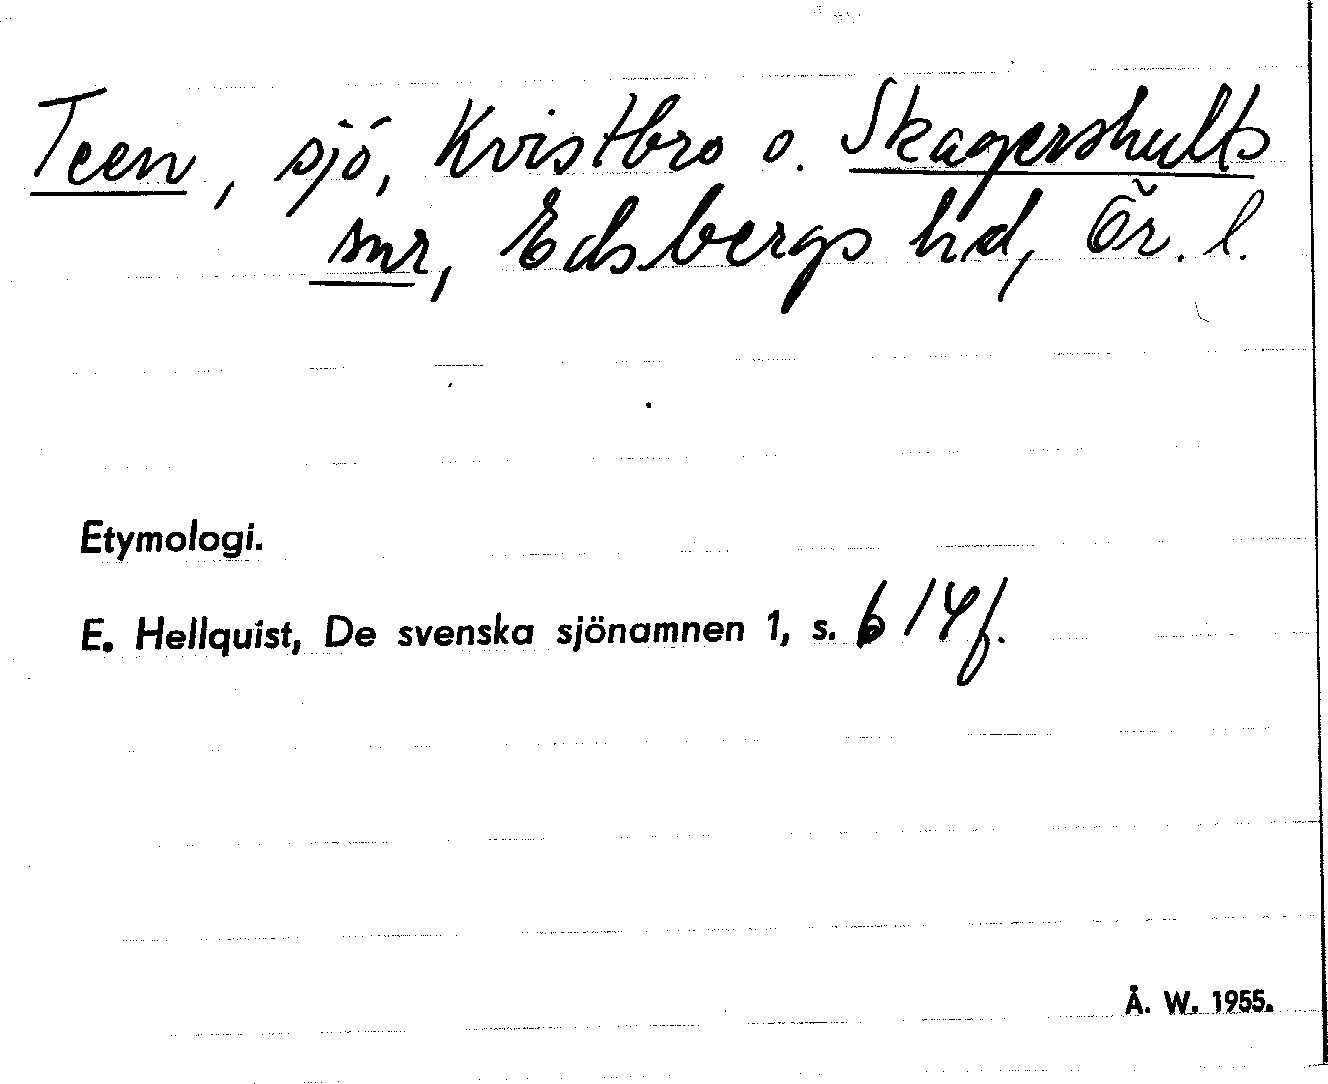 Teen, sjö, Kvistbro o. Skagershults
snr, Edsbergs hd, Ör. l.
Etymologi.
E. Hellquist, De svenska sjönamnen 1, s. 614f.
Å. W. 1955.